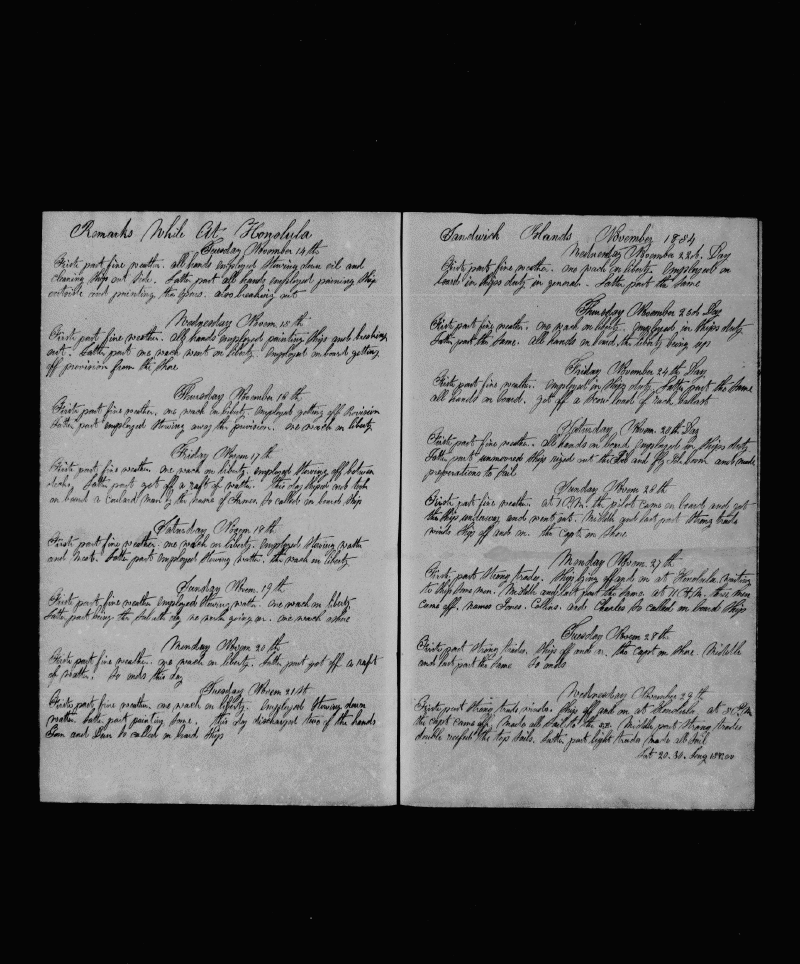 Remarks While At Honolula
Tuesday November 14th
Firste part fine weather. all hands employed stowing down oil and
cleaning ship out side. Latter part all hands employed painting ship
outside and painting the spars. also breaking out
Wednesday Novem 15th
Firste part fine weather. All hands employed painting ship and breaking
out. Latter part one wach went on liberty. employed on board getting
off provision from the shore
Thursday November 16th
Firste part fine weather. one wach on liberty. employed getting off provision
Latter part employed stowing away the provision. one wach on liberty
Friday Novem 17th
Firste part fine weather one wach on liberty. employed stowing off between
decks. Latter part got off a raft of watter. This day shiped and took
on board a man by the name of so called on board ship
Saturday Novem 18th
Firste part fine weather. one wach on liberty. employed stowing watter
and meat. Latter part employed stowing watter. the wach on liberty
Sunday Novem. 19th
Firste part fine weather employed stowing watter. one wach on liberty
Latter part being the Sabath day no work going on. one wach ashore
Monday Novem 20th
Firste part fine weather. one wach on liberty. Latter part got off a raft
of watter. So ends this day
Tuesday Novem 21st
Firste part fine weather. one wach on liberty. employed stowing down
watter. Latter part painting some. this day discharged two of the hands
Tom and so called on board ship
Sandwich Islands November 1854
Wednesday November 22d. Day
Firste part fine weather. one wach on liberty. employed on
board in ships duty in general. Latter part the same
Thursday November 23d Day
Firste part fine weather. one wach on liberty. employed in ships duty
Latter part the same. all hands on board, the liberty being up
Friday November 24th Day
Firste part fine weather. employed in ships duty. Latter part the same
all hands on board. got off a load of rock ballast
Saturday Novem. 25th Day
Firste part fine weather. all hands on board employed in ships duty
Latter part unmoored ship riged out the Jib and fly Jib boom and made
preperations to sail
Sunday Novem 26th
Firste part fine weather at P.M. the pilot came on board and got
the ship underway and went out. Middle and last part strong trade
winds ship off and on. the Capt on shore
Monday Novem. 27th
Firste part strong trades. Ship lying off and on at Honolula. waiting
to ship some men. Middle and last part the same. at P.M. three men
came off. names Jones. Collins. and Charles so called on board ship
Tuesday Novem 28th
Firste part strong trades. Ship off and on. the Capt on shore. Middle
and last part the same So ends
Wednesday November 29th
Firste part strong trade winds. Ship off and on at Honolula. at P.M
the capt came off. made all sail to the Middle part strong trades
double reefed the top sails. Latter part light trades made all sail
Lat 20.30. Long